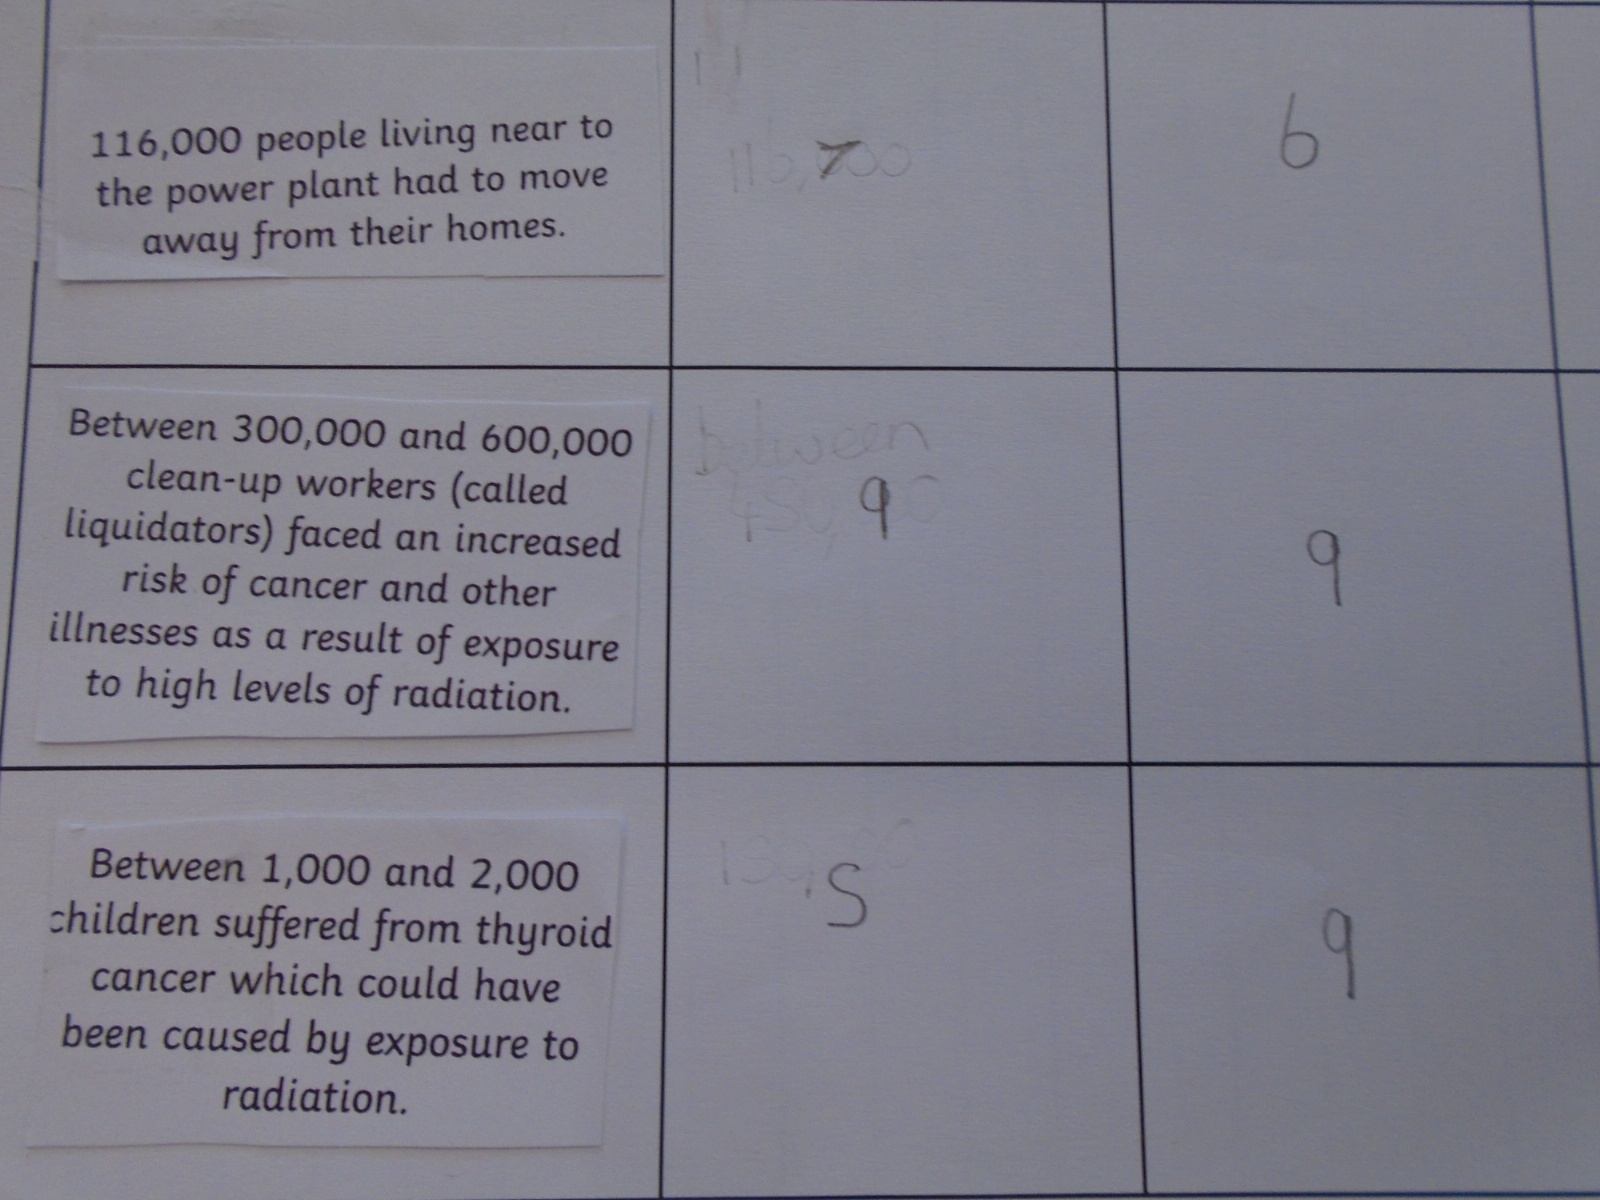 116,000 people living near to
the power plant had to move
away from their homes.
7
6
Between 300,000 and 600,000
clean-up workers (called
liquidators) faced an increased
risk of cancer and other
illnesses as a result of exposure
to high levels of radiation.
between
9
9
Between 1,000 and 2,000
children suffered from thyroid
cancer which could have
been caused by exposure to
radiation.
5
9